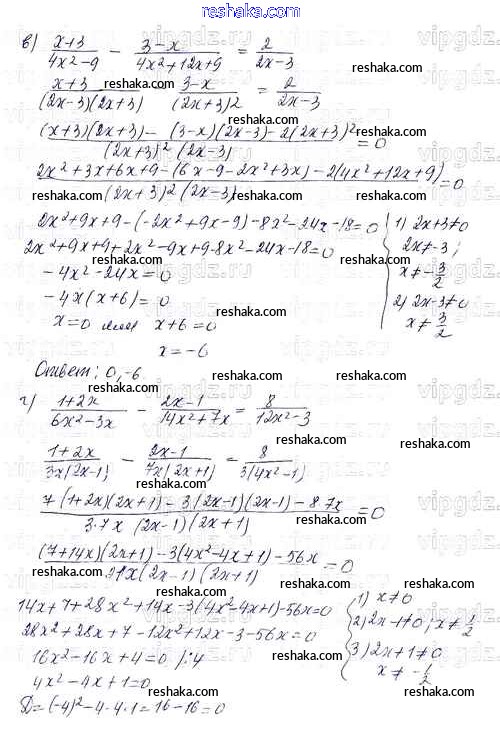 www.reshaka.com
в) (x+3)/(4x²-9) - (3-x)/(4x²+12x+9) = 2/(2x-3)
(x+3)/((2x-3)(2x+3)) - (3-x)/((2x+3)²) = 2/(2x-3)
((x+3)(2x+3) - (3-x)(2x-3) - 2(2x+3)²)/((2x+3)²(2x-3)) = 0
(2x²+3x+6x+9-(6x-9-2x²+3x)-2(4x²+12x+9))/((2x+3)²(2x-3)) = 0
2x²+9x+9-(-2x²+9x-9)-8x²-24x-18=0
2x²+9x+9+2x²-9x+9-8x²-24x-18=0
-4x²-24x=0
-4x(x+6)=0
x=0 или x+6=0
x=-6
1) 2x+3≠0
2x≠-3;
x≠-3/2
2) 2x-3≠0
x≠3/2
Ответ: 0, -6
г) (1+2x)/(6x²-3x) - (2x-1)/(14x²+7x) = 8/(12x²-3)
(1+2x)/(3x(2x-1)) - (2x-1)/(7x(2x+1)) = 8/(3(4x²-1))
(7(1+2x)(2x+1)-3(2x-1)(2x-1)-8·7x)/(3·7x(2x-1)(2x+1)) = 0
((7+14x)(2x+1)-3(4x²-4x+1)-56x)/(21x(2x-1)(2x+1)) = 0
14x+7+28x²+14x-3(4x²-4x+1)-56x=0
28x²+28x+7-12x²+12x-3-56x=0
16x²-16x+4=0 /:4
4x²-4x+1=0
D=(-4)²-4·4·1=16-16=0
1) x≠0
2) 2x-1≠0; x≠1/2
3) 2x+1≠0
x≠-1/2